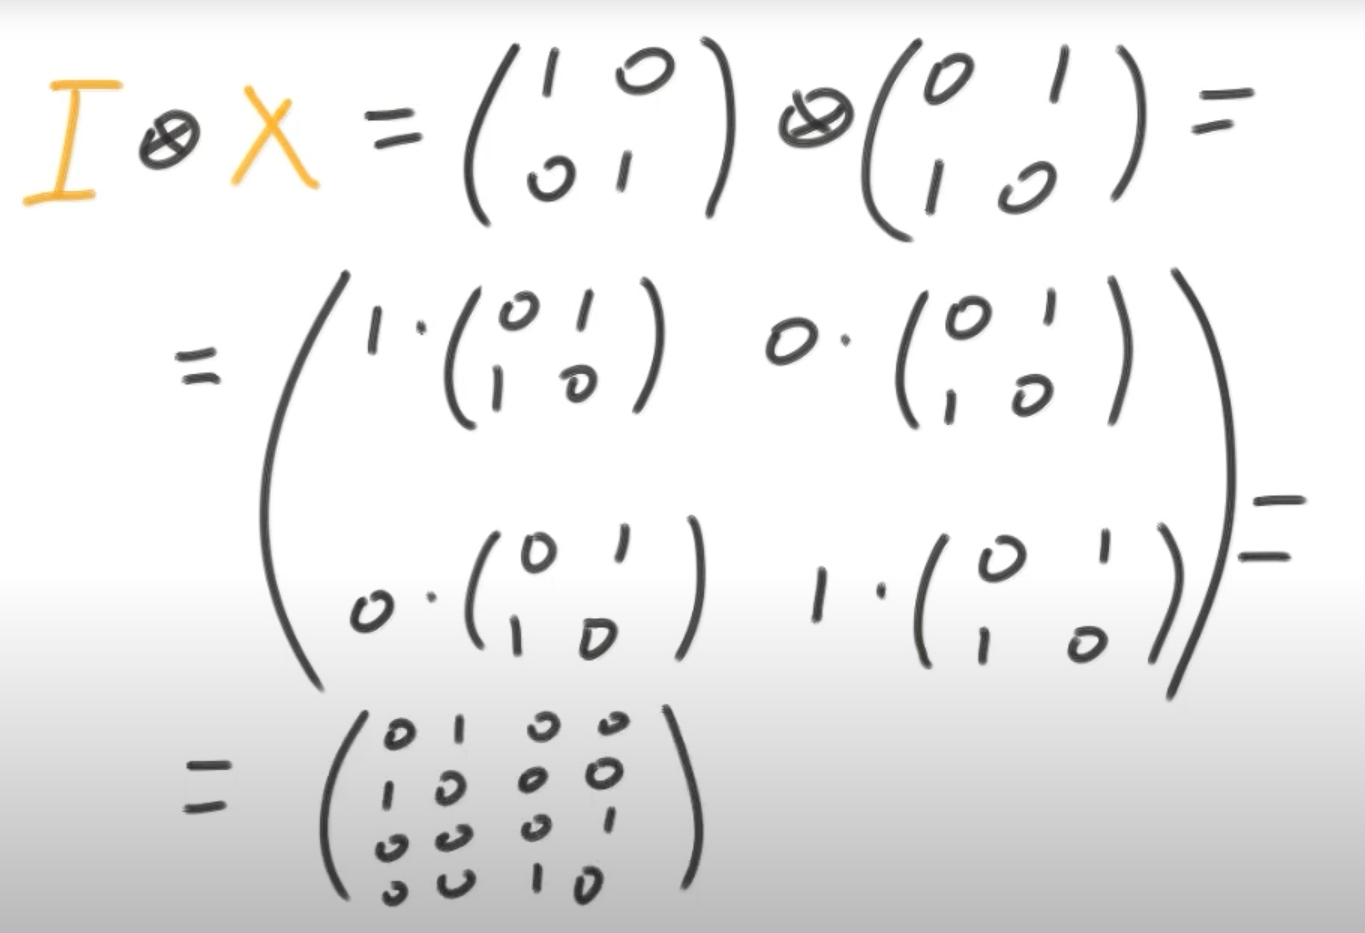 I ⊗ X = ( 1 0 ) ⊗ ( 0 1 ) =
0 1 1 0
= ( 1 · ( 0 1 ) 0 · ( 0 1 ) ) =
1 0 1 0
0 · ( 0 1 ) 1 · ( 0 1 )
1 0 1 0
= ( 0 1 0 0 )
1 0 0 0
0 0 0 1
0 0 1 0